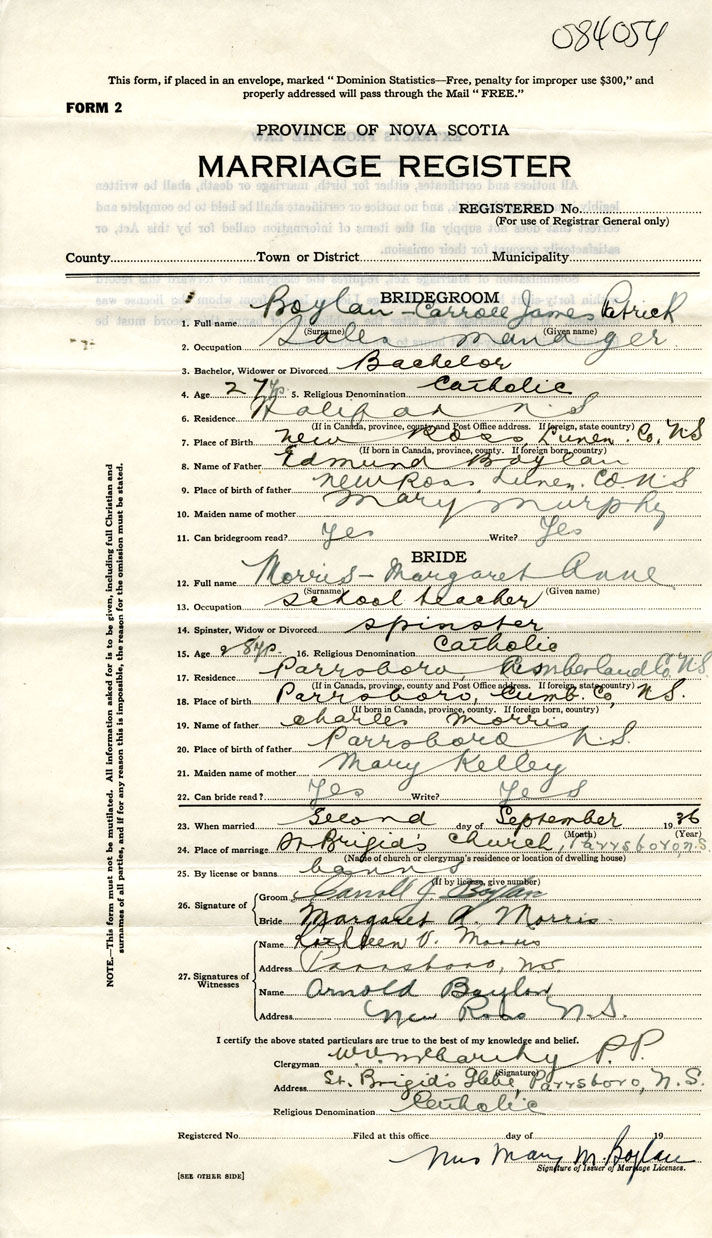 084054
This form, if placed in an envelope, marked "Dominion Statistics—Free, penalty for improper use $300," and
properly addressed will pass through the Mail "FREE."
FORM 2
PROVINCE OF NOVA SCOTIA
MARRIAGE REGISTER
REGISTERED No.
(For use of Registrar General only)
County Town or District Municipality
BRIDEGROOM
1. Full name Boylan - Carroll James Patrick
(Surname) (Given name)
2. Occupation Sales manager
3. Bachelor, Widower or Divorced Bachelor
4. Age 27 yrs 5. Religious Denomination Catholic
6. Residence Halifax N S
(If in Canada, province, county and Post Office address. If foreign, state country)
7. Place of Birth New Ross, Lunen. Co, N S
(If born in Canada, province, county. If foreign born, country)
8. Name of Father Edmund Boylan
9. Place of birth of father New Ross, Lunen. Co N S
10. Maiden name of mother Mary Murphy
11. Can bridegroom read? Yes Write? Yes
BRIDE
12. Full name Morris - Margaret Anne
(Surname) (Given name)
13. Occupation School teacher
14. Spinster, Widow or Divorced spinster
15. Age 28 yr. 16. Religious Denomination Catholic
17. Residence Parrsboro, Cumberland Co, N.S.
(If in Canada, province, county and Post Office address. If foreign, state country)
18. Place of birth Parrsboro, Cumb. Co, N.S.
(If born in Canada, province, county. If foreign born, country)
19. Name of father Charles Morris
20. Place of birth of father Parrsboro, N.S.
21. Maiden name of mother Mary Kelley
22. Can bride read? Yes Write? Yes
23. When married second day of September 1936
(Month) (Year)
24. Place of marriage St Brigid's Church, Parrsboro, N.S.
(Name of church or clergyman's residence or location of dwelling house)
25. By license or banns banns
(If by license, give number)
26. Signature of Groom Carroll J. Boylan
Bride Margaret A. Morris
27. Signatures of Witnesses Name Kathleen V. Morris
Address Parrsboro, N.S.
Name Arnold Boylan
Address New Ross N.S.
I certify the above stated particulars are true to the best of my knowledge and belief.
Clergyman P.P.
(Signature)
Address St. Brigid's Glebe, Parrsboro, N.S.
Religious Denomination Catholic
Registered No. Filed at this office day of 19
Mrs Mary M. Boylan
Signature of Issuer of Marriage Licenses.
[SEE OTHER SIDE]
NOTE.—This form must not be mutilated. All information asked for is to be given, including full Christian and
surnames of all parties, and if for any reason this is impossible, the reason for the omission must be stated.